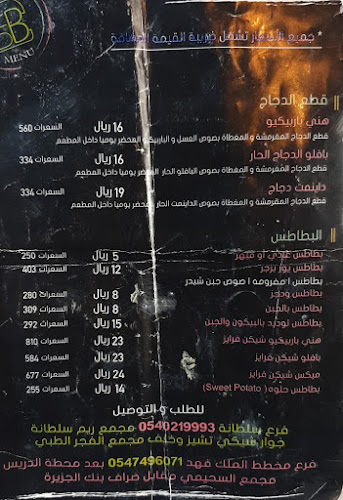 MENU
* جميع الأسعار تشمل ضريبة القيمة المضافة
قطع الدجاج
هني باربيكيو 16 ريال السعرات 560
قطع الدجاج المقرمشة و المغطاة بصوص العسل و الباربيكيو المحضر يوميا داخل المطعم
بافلو الدجاج الحار 16 ريال السعرات 334
قطع الدجاج المقرمشة و المغطاة بصوص البافلو الحار المحضر يوميا داخل المطعم
داينمت دجاج 19 ريال السعرات 334
قطع الدجاج المقرمشة و المغطاة بصوص الداينمت الحار المحضر يوميا داخل المطعم
البطاطس
بطاطس عادي أو مبهر 5 ريال السعرات 250
بطاطس بوز برجر 12 ريال السعرات 403
بطاطس | مفرومه | صوص جبن شيدر
بطاطس ودجز 8 ريال السعرات 280
بطاطس بالجبن 8 ريال السعرات 309
بطاطس لوديد بالبيكون والجبن 15 ريال السعرات 292
هني باربيكيو شيكن فرايز 23 ريال السعرات 810
بافلو شيكن فرايز 23 ريال السعرات 584
ميكس شيكن فرايز 24 ريال السعرات 677
بطاطس حلوه ( Sweet Potato ) 14 ريال السعرات 255
للطلب و التوصيل
فرع سلطانة 0540219993 مجمع ريم سلطانة
جوار سيكي تشيز وخلف مجمع الفجر الطبي
فرع مخطط الملك فهد 0547496071 بعد محطة الدريس
مجمع السحيمي مقابل صراف بنك الجزيرة